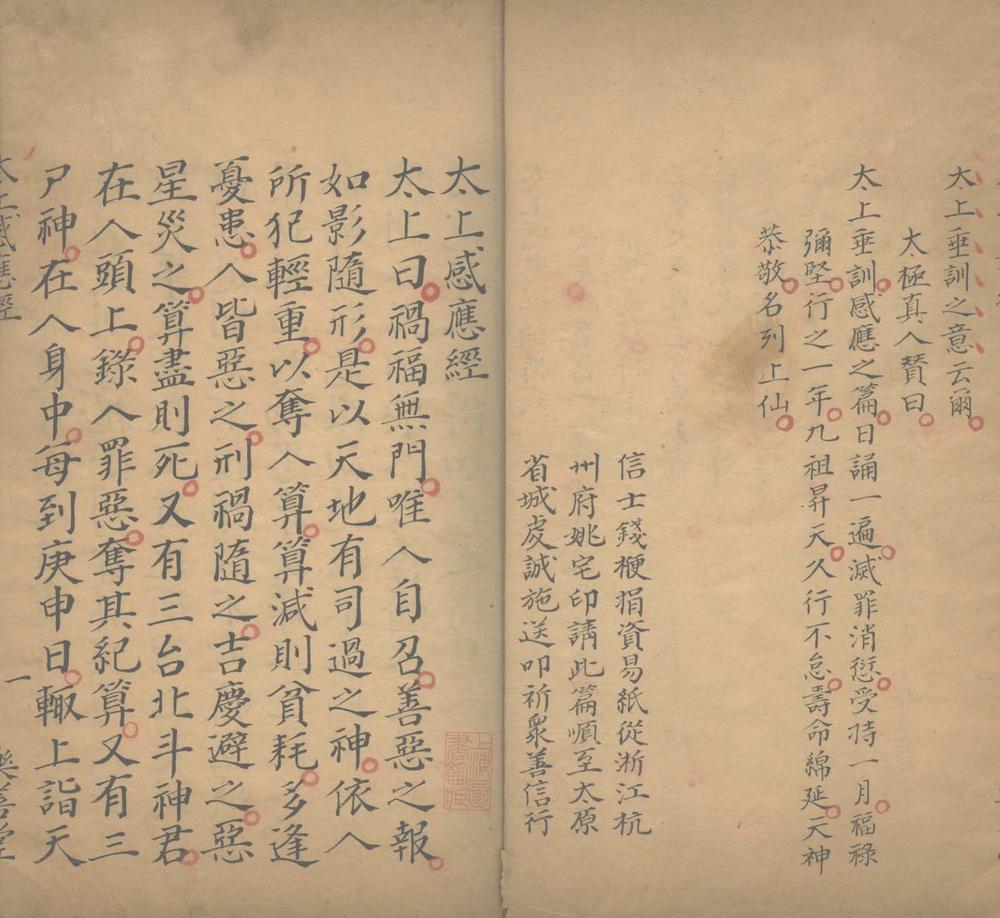 太上垂訓之意云爾
太極真人贊曰
太上垂訓感應之篇日誦一遍滅罪消愆受持一月福祿
彌堅行之一年九祖昇天久行不怠壽命綿延天神
恭敬名列上仙
信士錢梗捐資易紙從浙江杭
州府姚宅印請此篇順至太原
省城虔誠施送叩祈衆善信行
太上感應經
太上曰禍福無門唯人自召善惡之報
如影隨形是以天地有司過之神依人
所犯輕重以奪人算算減則貧耗多逢
憂患人皆惡之刑禍隨之吉慶避之惡
星災之算盡則死又有三台北斗神君
在人頭上錄人罪惡奪其紀算又有三
尸神在人身中每到庚申日輙上詣天
太上感應經
一
善堂